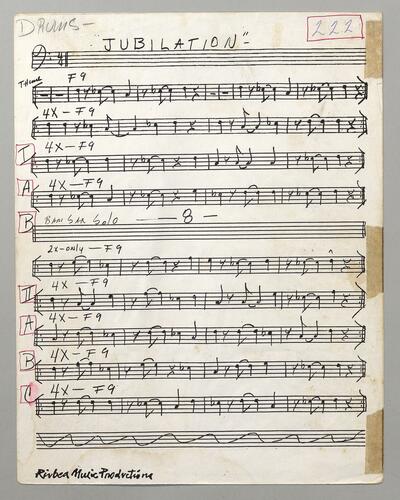 DRUMS—
222
"JUBILATION"
F9
4X — F9
4X — F9
I
4X — F9
A
B
BARI SAX SOLO — 8 —
2X-ONLY — F9
4X — F9
II
4X — F9
A
4X — F9
B
4X — F9
C
Rivbea Music Productions